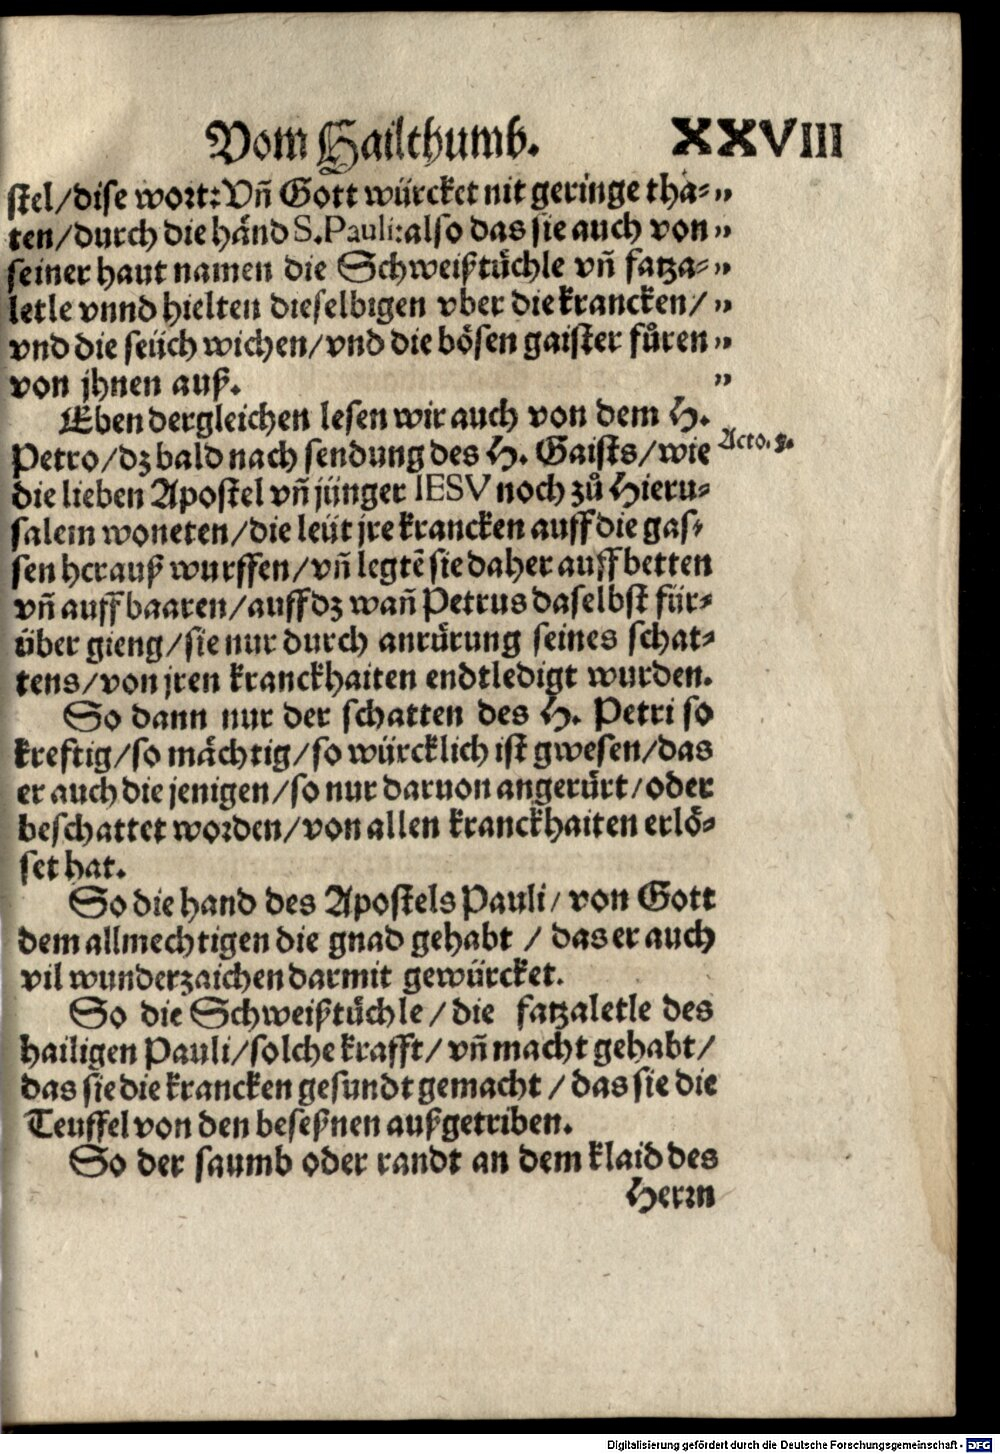 Vom Hailthumb. XXVIII
stel/dise wort: Vñ Gott würcket nit geringe tha⸗ „
ten/durch die hånd S. Pauli: also das sie auch von „
seiner haut namen die Schweißtůchle vñ fatza⸗ „
letle vnnd hielten dieselbigen vber die krancken/ „
vnd die seüch wichen/vnd die bösen gaister fůren „
von jhnen auß. „
Eben dergleichen lesen wir auch von dem H.
Petro/dz bald nach sendung des H. Gaists/wie
Acto. 5.
die lieben Apostel vñ jünger IESV noch zů Hieru⸗
salem woneten/die leüt jre krancken auff die gas⸗
sen herauß wurffen/vñ legtẽ sie daher auff betten
vñ auff baaren/auff dz wañ Petrus daselbst für⸗
über gieng/sie nur durch anrůrung seines schat⸗
tens/von jren kranckhaiten endtledigt wurden.
So dann nur der schatten des H. Petri so
kreftig/so mächtig/so würcklich ist gwesen/das
er auch die jenigen/so nur daruon angerůrt/oder
beschattet worden/von allen kranckhaiten erlö⸗
set hat.
So die hand des Apostels Pauli/ von Gott
dem allmechtigen die gnad gehabt / das er auch
vil wunderzaichen darmit gewürcket.
So die Schweißtůchle/die fatzaletle des
hailigen Pauli/solche krafft/vñ macht gehabt/
das sie die krancken gesundt gemacht / das sie die
Teuffel von den beseßnen außgetriben.
So der saumb oder randt an dem klaid des
Herrn
Digitalisierung gefördert durch die Deutsche Forschungsgemeinschaft - DFG